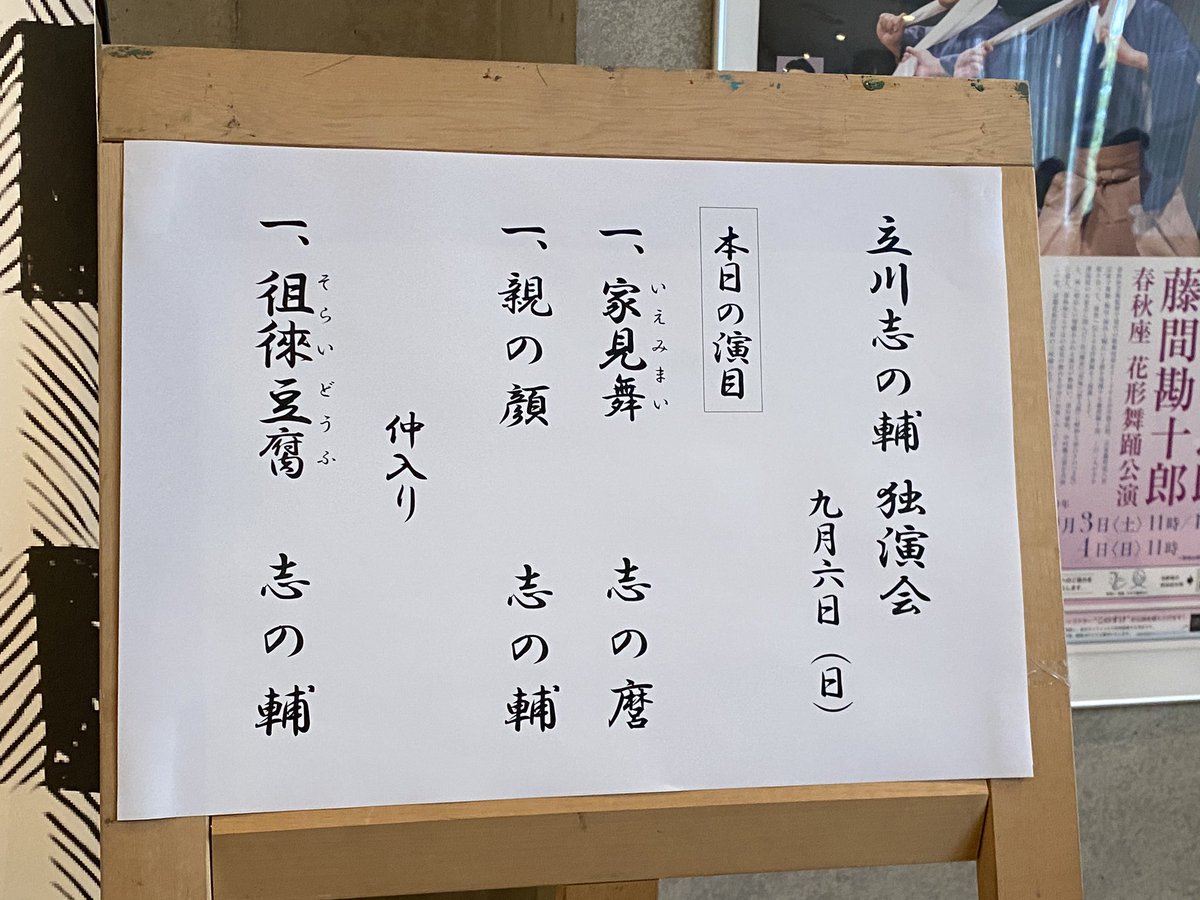 立川志の輔 独演会
九月六日(日)
本日の演目
一、家見舞 志の麿
いえみまい
一、親の顔 志の輔
仲入り
一、徂徠豆腐 志の輔
そらいどうふ
藤間勘十郎
春秋座 花形舞踊公演
月3日〈土〉11時/1
4日〈日〉11時